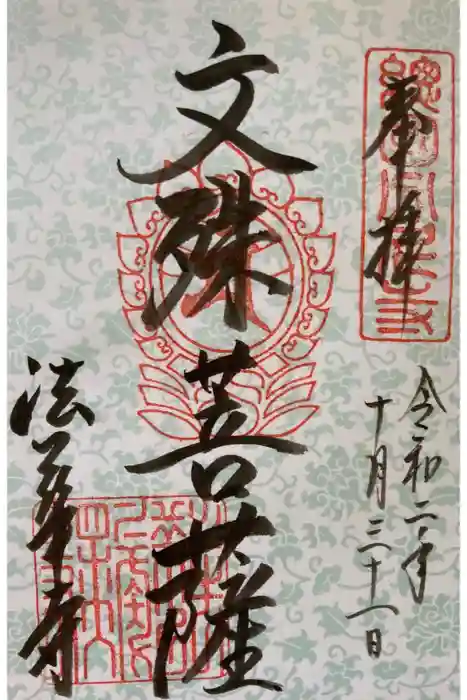 奉拝
令和二年
十月三十一日
文殊菩薩
法華寺